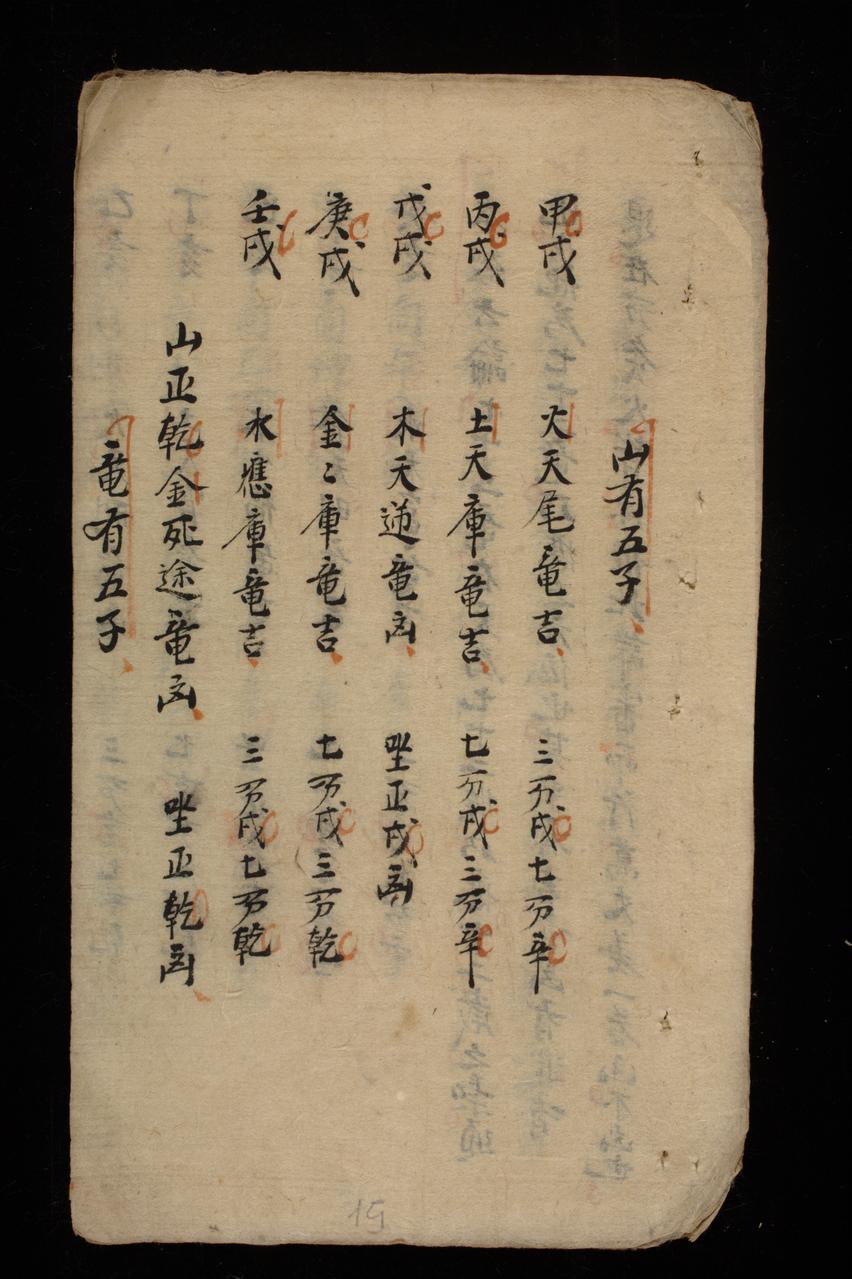 山有五子
甲戌 火天尾竜吉 三分戌七分辛
丙戌 土天庫竜吉 七分戌三分辛
戊戌 木天逆竜凶 坐正戌凶
庚戌 金〻庫竜吉 七分戌三分乾
壬戌 水應庫竜吉 三分戌七分乾
山正乾金死途竜凶 坐正乾凶
竜有五子
15